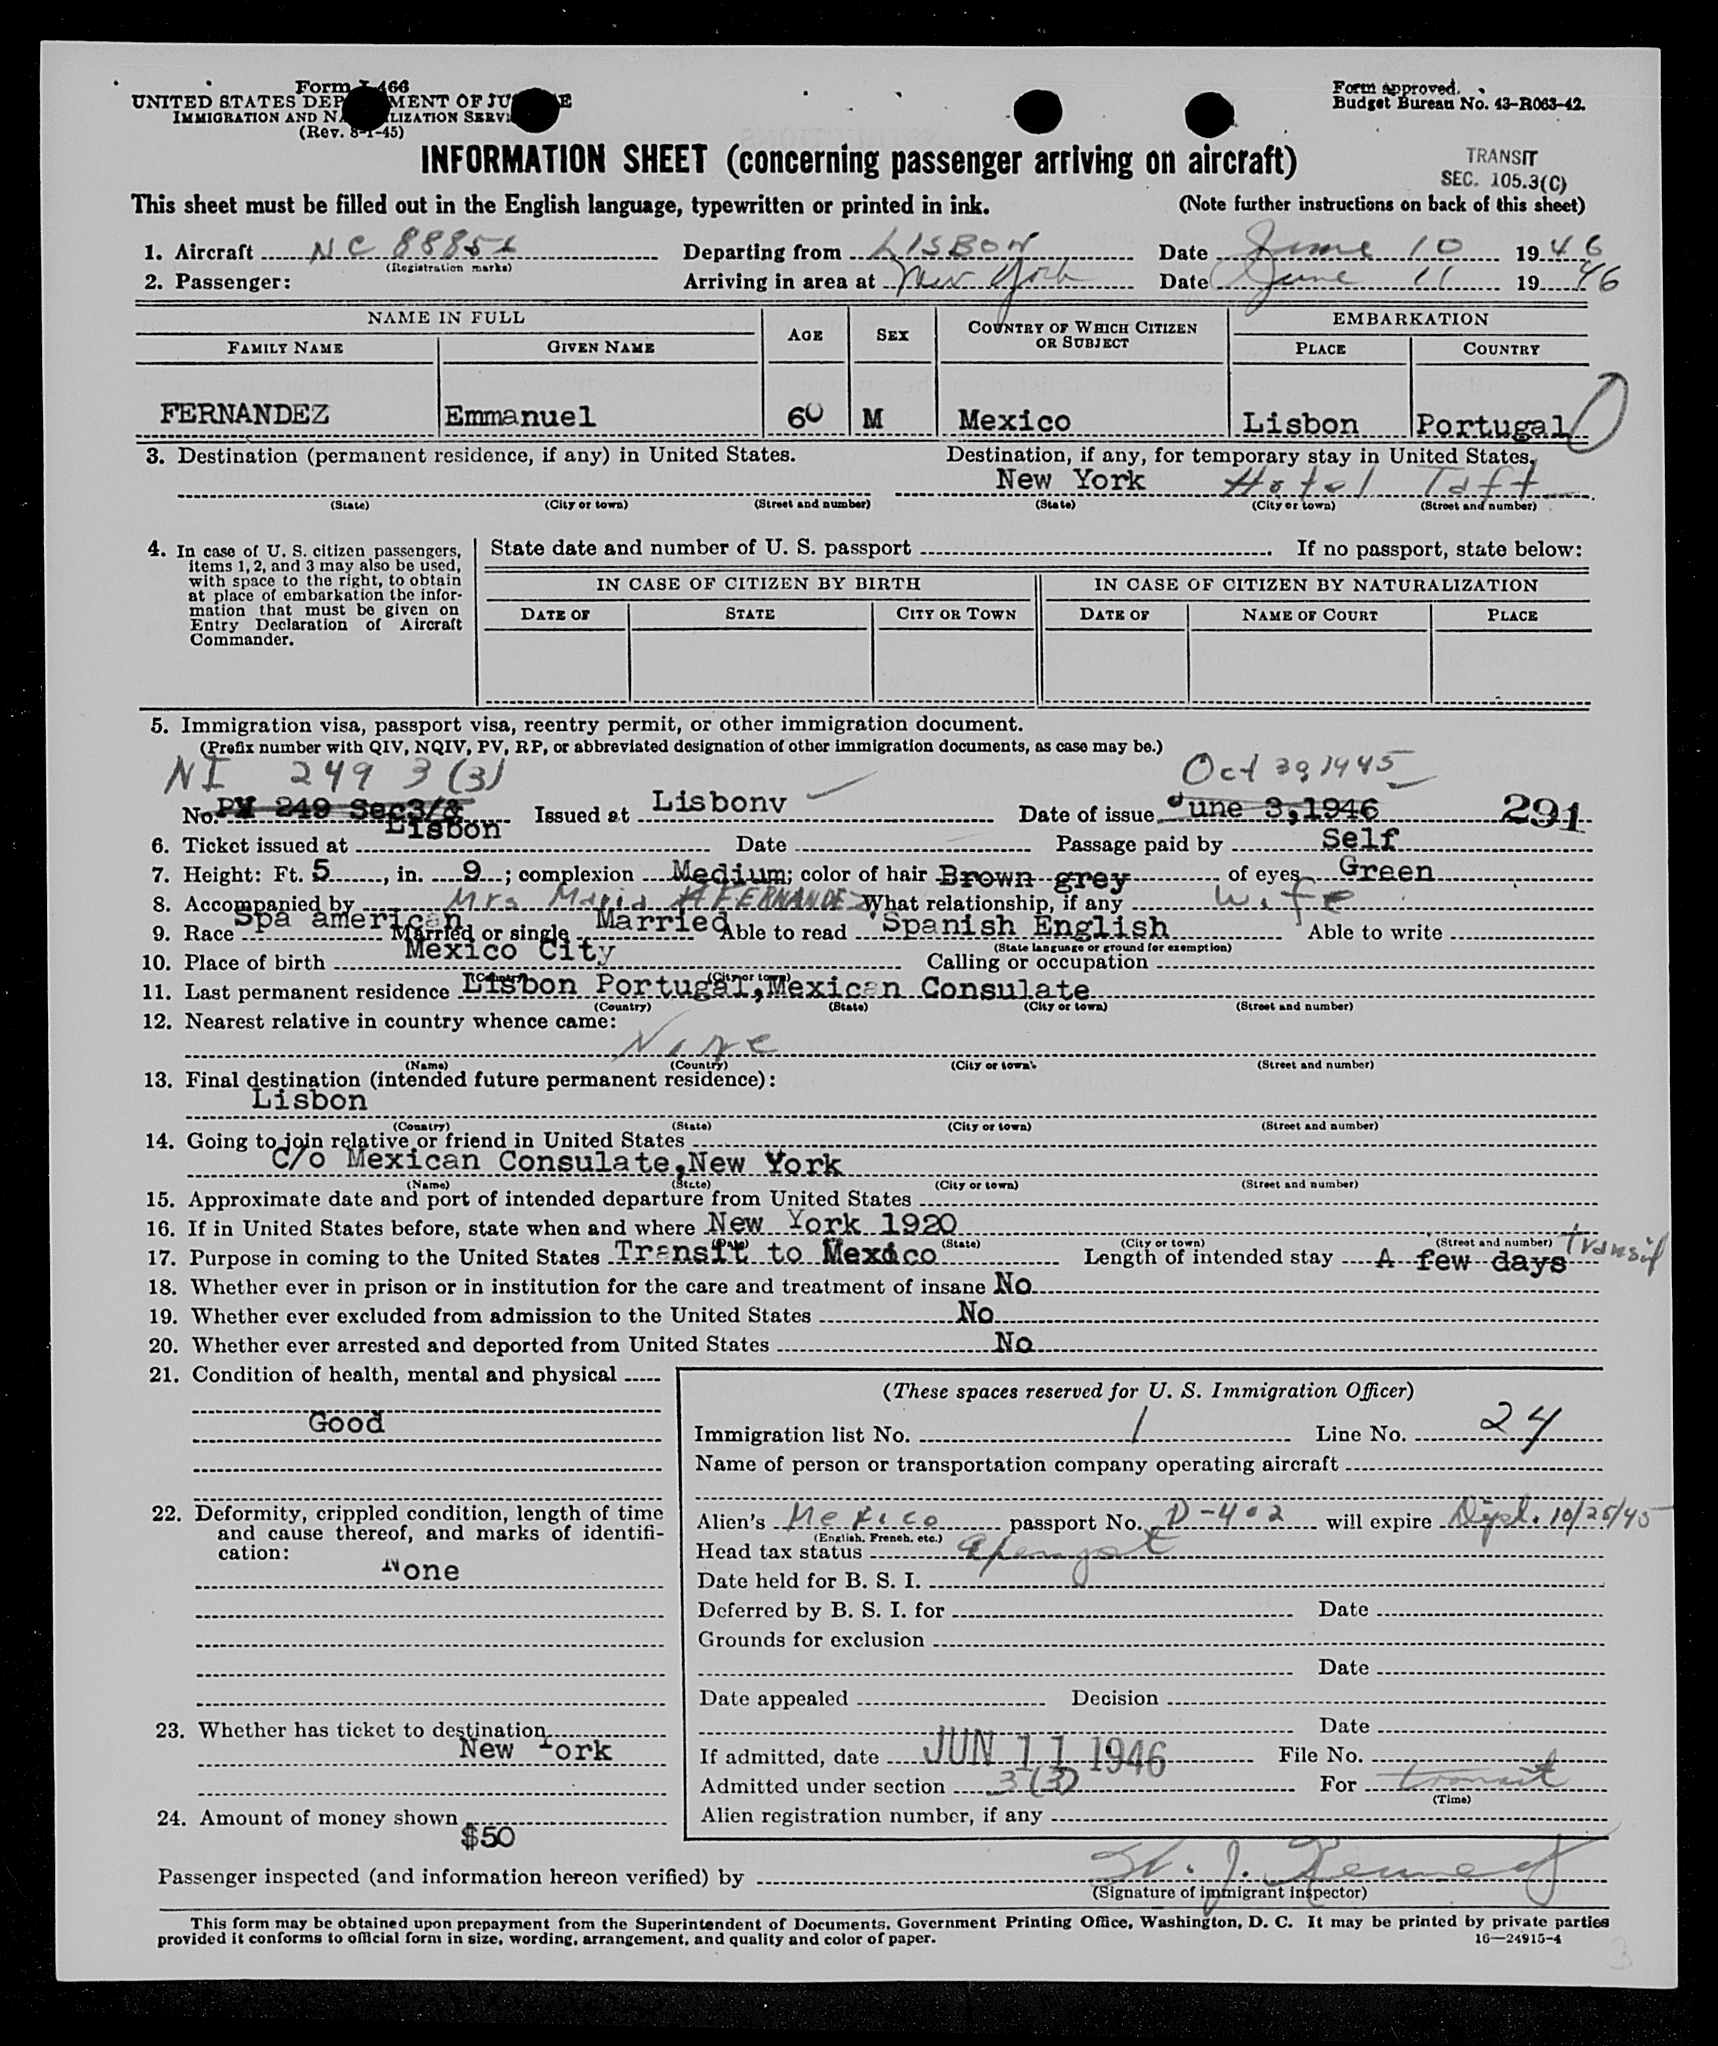 Form I-466
UNITED STATES DEPARTMENT OF JUSTICE
IMMIGRATION AND NATURALIZATION SERVICE
(Rev. 8-1-45)
Form approved.
Budget Bureau No. 43-R063-42.
INFORMATION SHEET (concerning passenger arriving on aircraft)
TRANSIT
SEC. 105.3(C)
This sheet must be filled out in the English language, typewritten or printed in ink. (Note further instructions on back of this sheet)
1. Aircraft NC 88851 Departing from LISBON Date June 10 1946
(Registration marks)
2. Passenger: Arriving in area at New York Date June 11 1946
NAME IN FULL AGE SEX COUNTRY OF WHICH CITIZEN OR SUBJECT EMBARKATION
FAMILY NAME GIVEN NAME PLACE COUNTRY
FERNANDEZ Emmanuel 60 M Mexico Lisbon Portugal
3. Destination (permanent residence, if any) in United States. Destination, if any, for temporary stay in United States.
New York Hotel Taft
(State) (City or town) (Street and number) (State) (City or town) (Street and number)
4. In case of U. S. citizen passengers,
items 1, 2, and 3 may also be used,
with space to the right, to obtain
at place of embarkation the infor-
mation that must be given on
Entry Declaration of Aircraft
Commander.
State date and number of U. S. passport If no passport, state below:
IN CASE OF CITIZEN BY BIRTH IN CASE OF CITIZEN BY NATURALIZATION
DATE OF STATE CITY OR TOWN DATE OF NAME OF COURT PLACE
5. Immigration visa, passport visa, reentry permit, or other immigration document.
(Prefix number with QIV, NQIV, PV, RP, or abbreviated designation of other immigration documents, as case may be.)
NI 249 3(3) Oct 30, 1945
No. PV 249 Sec3/3 Issued at Lisbonv Date of issue June 3, 1946 291
6. Ticket issued at Lisbon Date Passage paid by Self
7. Height: Ft. 5, in. 9; complexion Medium; color of hair Brown grey of eyes Green
8. Accompanied by Mrs Maria A FERNANDEZ What relationship, if any wife
9. Race Spa american Married or single Married Able to read Spanish English Able to write
(State language or ground for exemption)
10. Place of birth Mexico City Calling or occupation
(Country) (City or town)
11. Last permanent residence Lisbon Portugal, Mexican Consulate
(Country) (State) (City or town) (Street and number)
12. Nearest relative in country whence came:
None
(Name) (Country) (City or town) (Street and number)
13. Final destination (intended future permanent residence):
Lisbon
(Country) (State) (City or town) (Street and number)
14. Going to join relative or friend in United States
C/o Mexican Consulate, New York
(Name) (State) (City or town) (Street and number)
15. Approximate date and port of intended departure from United States
16. If in United States before, state when and where New York 1920
(Date) (State) (City or town) (Street and number)
17. Purpose in coming to the United States Transit to Mexico Length of intended stay A few days transit
18. Whether ever in prison or in institution for the care and treatment of insane No
19. Whether ever excluded from admission to the United States No
20. Whether ever arrested and deported from United States No
21. Condition of health, mental and physical
Good
22. Deformity, crippled condition, length of time
and cause thereof, and marks of identifi-
cation:
None
23. Whether has ticket to destination
New York
24. Amount of money shown
$50
(These spaces reserved for U. S. Immigration Officer)
Immigration list No. 1 Line No. 24
Name of person or transportation company operating aircraft
Alien's Mexico passport No. D-402 will expire Dipl. 10/25/45
(English, French, etc.)
Head tax status
Date held for B. S. I.
Deferred by B. S. I. for Date
Grounds for exclusion
Date
Date appealed Decision
Date
If admitted, date JUN 11 1946 File No.
Admitted under section 3(3) For transit
(Time)
Alien registration number, if any
Passenger inspected (and information hereon verified) by
(Signature of immigrant inspector)
This form may be obtained upon prepayment from the Superintendent of Documents, Government Printing Office, Washington, D. C. It may be printed by private parties
provided it conforms to official form in size, wording, arrangement, and quality and color of paper. 16—24915-4